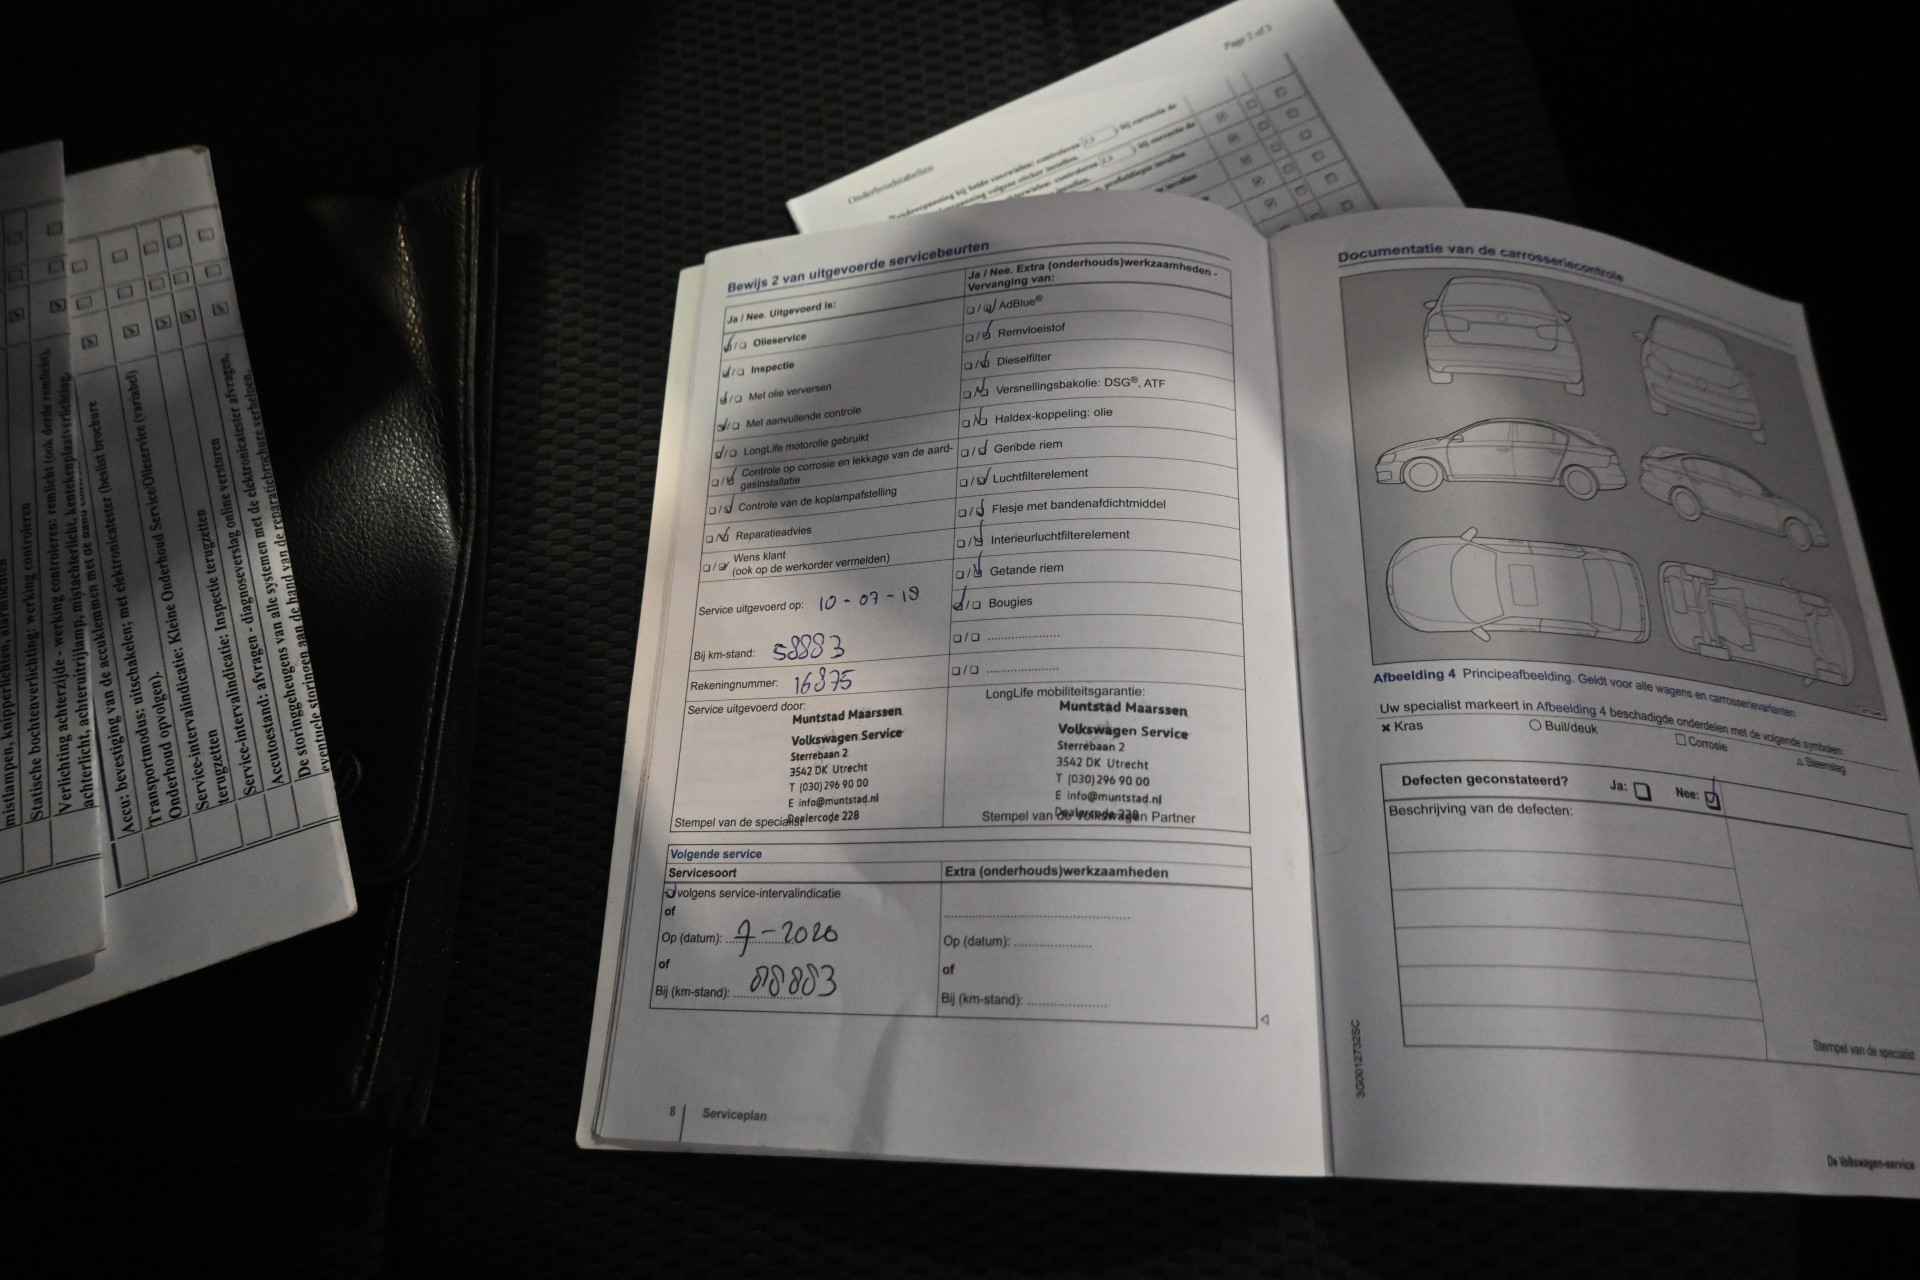 Page 2 of 3
mistlampen, knipperlichten, alarmlichten
Statische bochtenverlichting: werking controleren
Verlichting achterzijde - werking controleren: remlicht (ook derde remlicht),
achterlicht, achteruitrijlamp, mistachterlicht, kentekenplaatverlichting,
Accu: bevestiging van de accuklemmen met de hand
Transportmodus: uitschakelen; met elektronicatester (beslist brochure
Onderhoud opvolgen).
Service-intervalindicatie: Kleine Onderhoud Service/Olieservice (variabel)
terugzetten
Service-intervalindicatie: Inspectie terugzetten
Accutoestand: afvragen - diagnoseverslag online versturen
De storingsgeheugens van alle systemen met de elektronicatester afvragen,
eventuele storingen aan de hand van de reparatiebrochure verhelpen.
Bewijs 2 van uitgevoerde servicebeurten
Ja / Nee. Uitgevoerd is:
Olieservice
Inspectie
Met olie verversen
Met aanvullende controle
LongLife motorolie gebruikt
Controle op corrosie en lekkage van de aard-
gasinstallatie
Controle van de koplampafstelling
Reparatieadvies
Wens klant
(ook op de werkorder vermelden)
Service uitgevoerd op: 10-07-19
Bij km-stand: 58883
Rekeningnummer: 16875
Service uitgevoerd door:
Muntstad Maarssen
Volkswagen Service
Sterrebaan 2
3542 DK Utrecht
T (030) 296 90 00
E info@muntstad.nl
Dealercode 228
Stempel van de specialist
Ja / Nee. Extra (onderhouds)werkzaamheden -
Vervanging van:
AdBlue®
Remvloeistof
Dieselfilter
Versnellingsbakolie: DSG®, ATF
Haldex-koppeling: olie
Geribde riem
Luchtfilterelement
Flesje met bandenafdichtmiddel
Interieurluchtfilterelement
Getande riem
Bougies
LongLife mobiliteitsgarantie:
Muntstad Maarssen
Volkswagen Service
Sterrebaan 2
3542 DK Utrecht
T (030) 296 90 00
E info@muntstad.nl
Dealercode 228
Stempel van de Volkswagen Partner
Volgende service
Servicesoort
volgens service-intervalindicatie
of
Op (datum): 7-2020
of
Bij (km-stand): 88883
Extra (onderhouds)werkzaamheden
Op (datum):
of
Bij (km-stand):
8 Serviceplan
Documentatie van de carrosseriecontrole
Afbeelding 4 Principeafbeelding. Geldt voor alle wagens en carrosserievarianten
Uw specialist markeert in Afbeelding 4 beschadigde onderdelen met de volgende symbolen:
Kras
Buil/deuk
Corrosie
Steenslag
Defecten geconstateerd? Ja: Nee:
Beschrijving van de defecten:
Stempel van de specialist
3G0012732SC
De Volkswagen-service